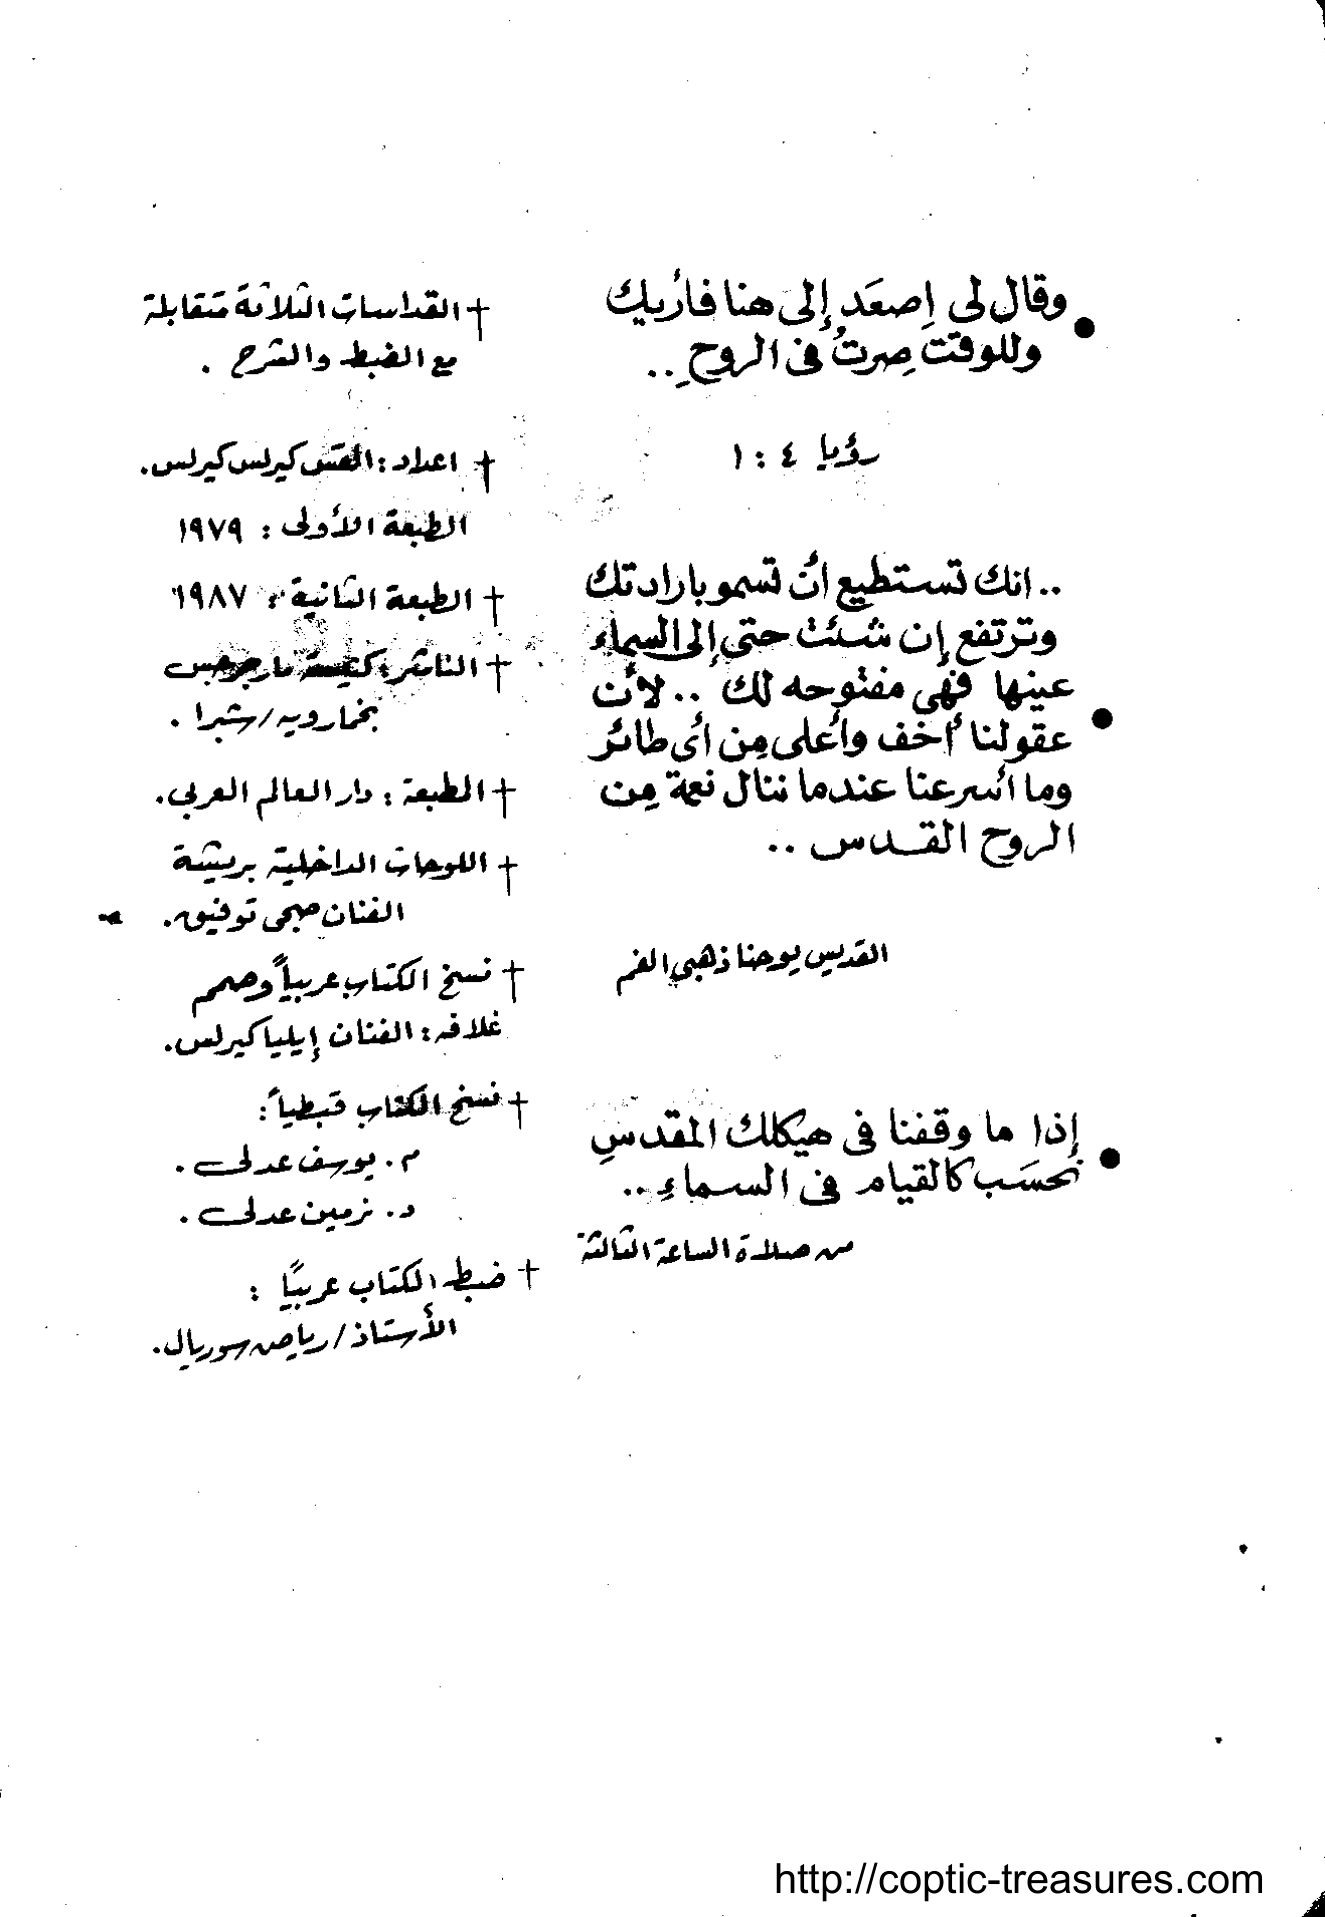 وقال لى اِصعَد إلى هنا فأريك
وللوقت صِرتُ فى الروحِ ..
رؤيا ٤ : ١
.. انك تستطيع أن تسمو بارادتك
وترتفع إن شئت حتى إلى السماء
عينها فهى مفتوحه لك .. لأن
عقولنا أخف وأعلى مِن أى طائر
وما أسرعنا عندما ننال نعمة مِن
الروح القدس ..
القديس يوحنا ذهبى الفم
إذا ما وقفنا فى هيكلك المقدسِ
نُحسَب كالقيام فى السماءِ ..
من صلاة الساعة الثالثة
† القداسات الثلاثة متقابلة
مع الضبط والشرح .
† اعداد : القس كيرلس كيرلس .
الطبعة الأولى : ١٩٧٩
† الطبعة الثانية : ١٩٨٧
† الناشر : كنيسة مارجرجس
بخمارويه / شبرا .
† الطبعة : دار العالم العربى .
† اللوحات الداخلية بريشة
الفنان صبحى توفيق .
† نسخ الكتاب عربياً وصمم
غلافه : الفنان إيليا كيرلس .
† نسخ الكتاب قبطياً :
م . يوسف عدلى .
د . نرمين عدلى .
† ضبط الكتاب عربيًا :
الأستاذ / رياض سوريال .
http://coptic-treasures.com